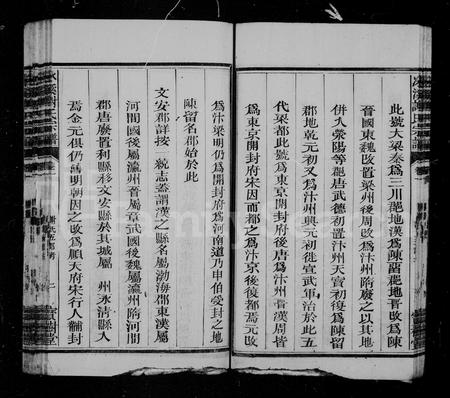 此號大梁秦為三川郡地漢為陳留郡地晉改為陳
晉國東魏改置梁州後周改為汴州隋廢之以其地
併久滎陽等郡唐武德初置汴州天寶初復為陳留
郡地乾元初又為汴州興元初徙宣武軍治於此五
代梁都此號為東京開封府後唐為汴州晉漢周皆
為東京開封府宋因而都之為汴京後復都焉元改
為汴梁明仍為開封府為河南道乃申伯受封之地
陳留名郡始於此
文安郡詳按一統志蓋謂漢之縣名屬渤海郡東漢屬
河間國後屬瀛州晉屬章武國後魏屬瀛州隋河間
郡唐廢置利縣移文安縣於其城屬 州永清縣人
焉金元俱仍舊明朝因之改為順天府宋行人輔封